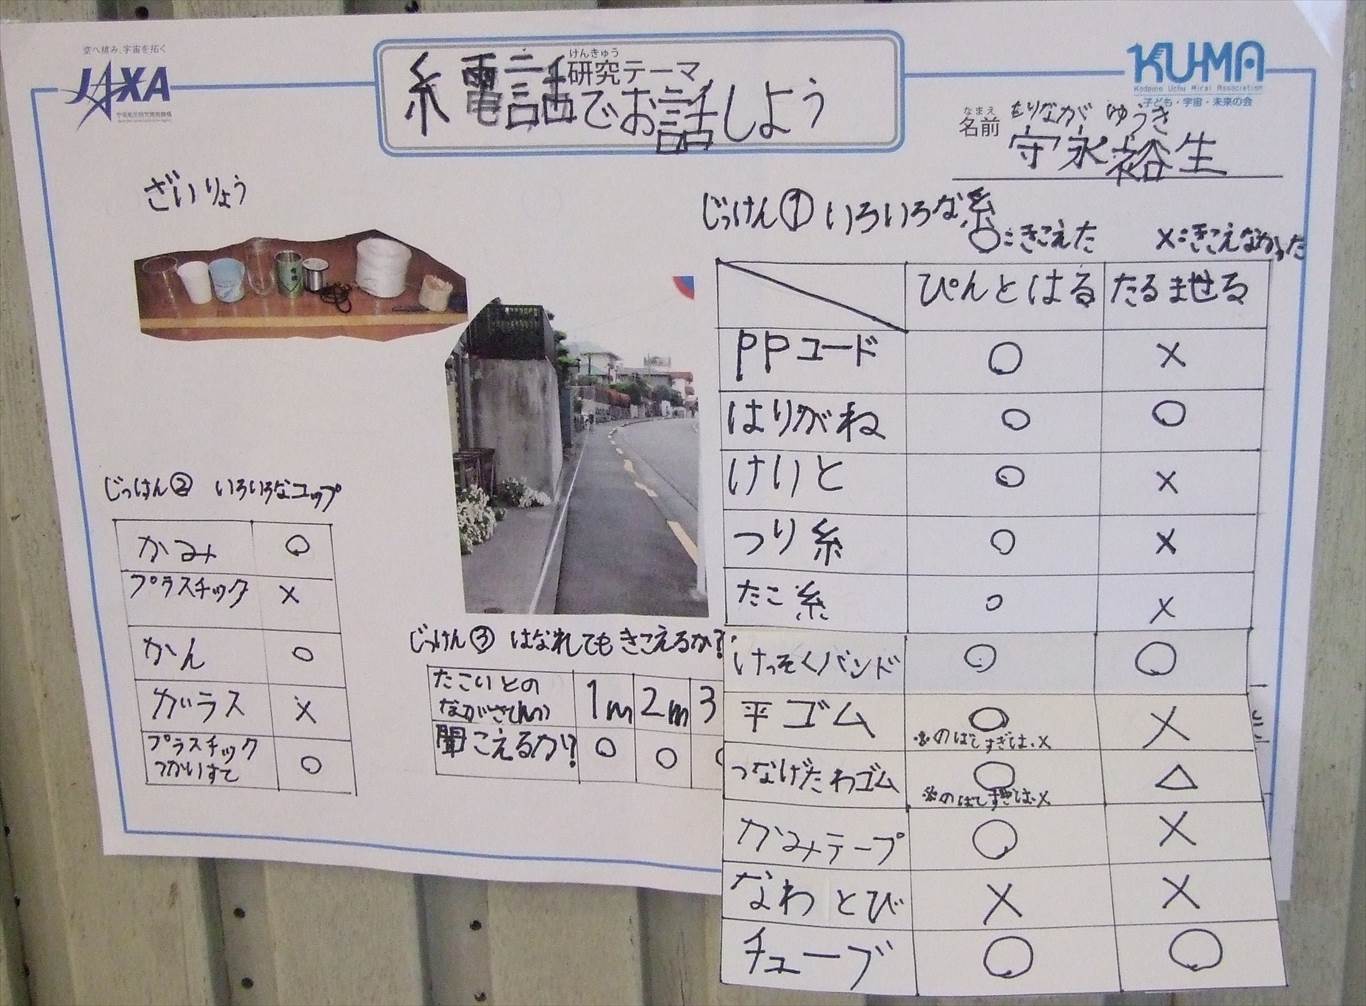 空へ挑み、宇宙を拓く
JAXA
けんきゅう
研究テーマ
糸電話でお話しよう
KU-MA
Kodomo Uchu Mirai Association
子ども・宇宙・未来の会
なまえ
名前
もりなが ゆうき
守永裕生
ざいりょう
じっけん① いろいろな糸
○:きこえた ×:きこえなかった
ぴんとはる たるませる
PPコード ○ ×
はりがね ○ ○
けいと ○ ×
つり糸 ○ ×
たこ糸 ○ ×
けっそくバンド ○ ○
平ゴム ○ ×
※のばしすぎは×
つなげたわゴム ○ △
※のばしすぎは×
かみテープ ○ ×
なわとび × ×
チューブ ○ ○
じっけん② いろいろなコップ
かみ ○
プラスチック ×
かん ○
ガラス ×
プラスチック
つかいすて ○
じっけん③ はなれてもきこえるか?
たこいとの
ながさ 1m 2m 3
聞こえるか? ○ ○